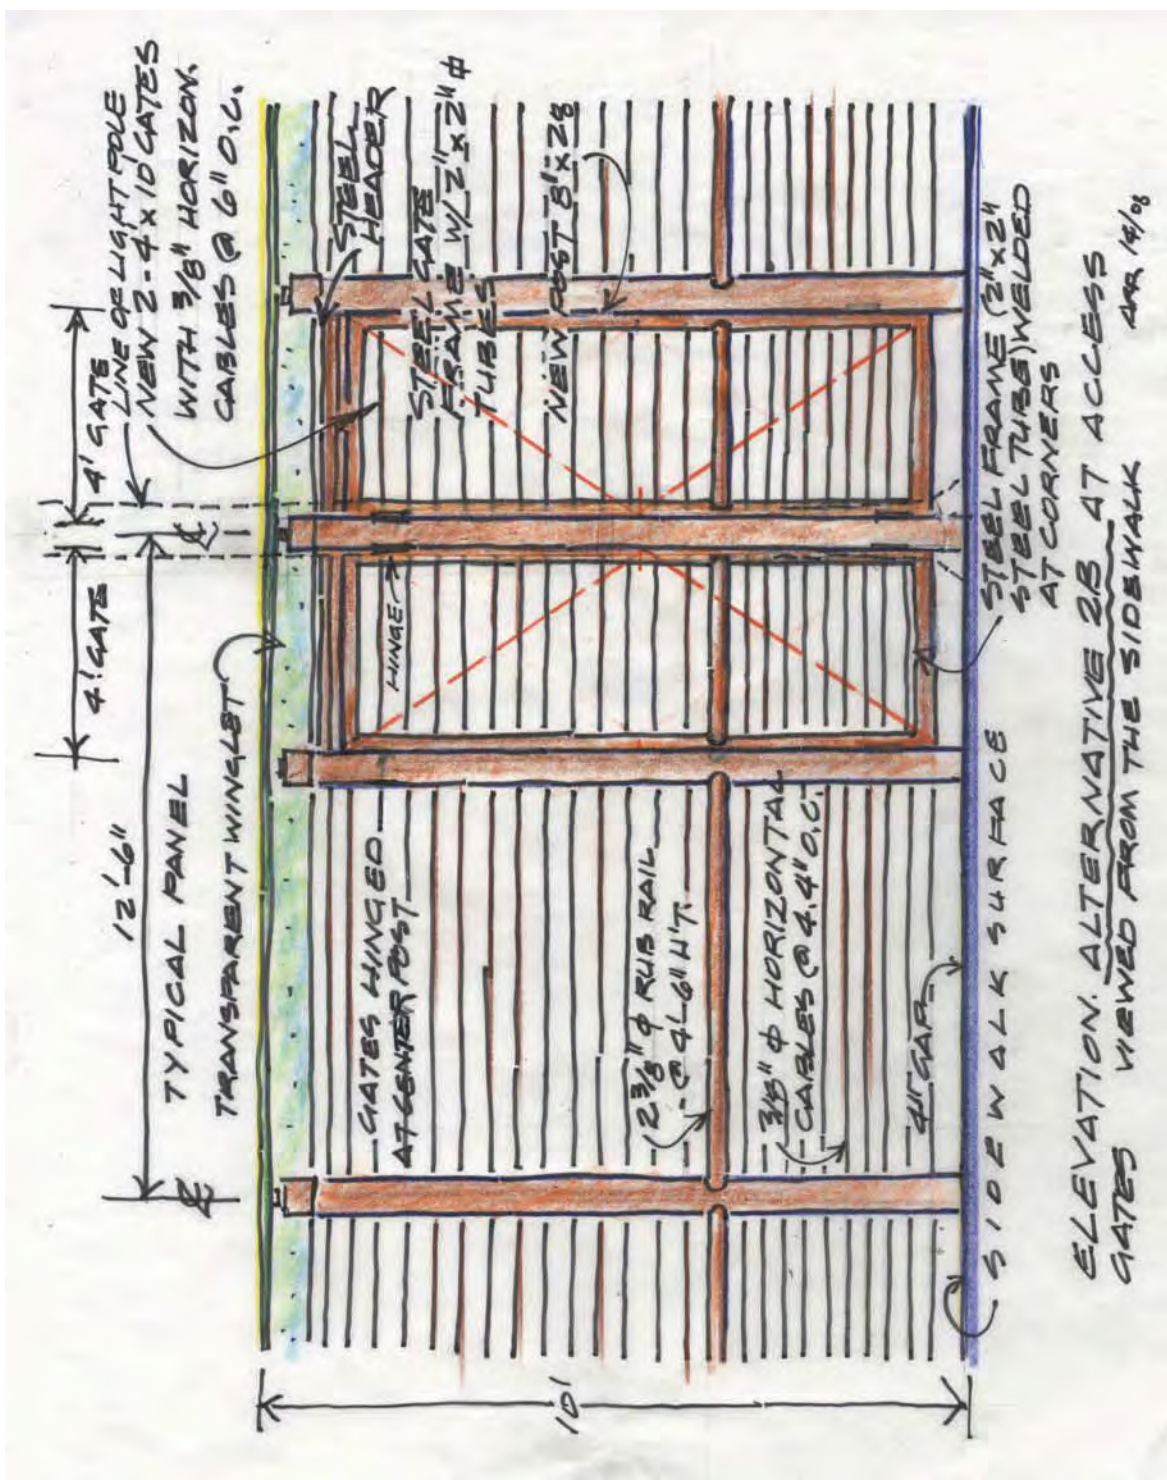 4' GATE
4' GATE
12'-6"
TYPICAL PANEL
TRANSPARENT WINGLET
LINE OF LIGHT POLE
NEW 2-4'x10' GATES
WITH 3/8" HORIZON.
CABLES @ 6" O.C.
STEEL
HEADER
STEEL GATE
FRAME W/ 2"x2" ⌀
TUBES
NEW POST 8"x28
HINGE
GATES HINGED
AT CENTER POST
2 3/8" ⌀ RUB RAIL
@ 4'-6" HT.
3/8" ⌀ HORIZONTAL
CABLES @ 4.4" O.C.
4" GAP
10'
SIDEWALK SURFACE
STEEL FRAME (2"x2"
STEEL TUBE) WELDED
AT CORNERS
ELEVATION. ALTERNATIVE 2B AT ACCESS
GATES VIEWED FROM THE SIDEWALK
14/08